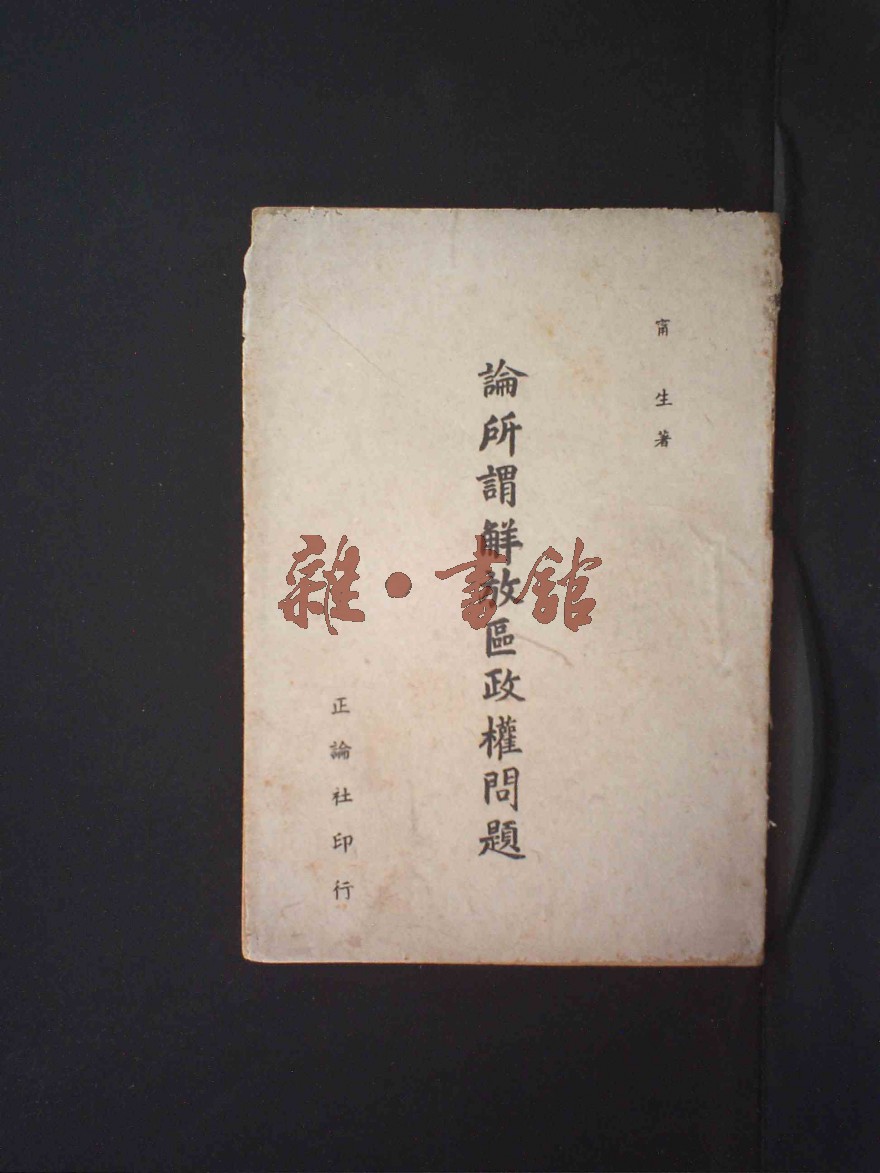 甯生著
論所謂解放區政權問題
正論社印行
雜·書館